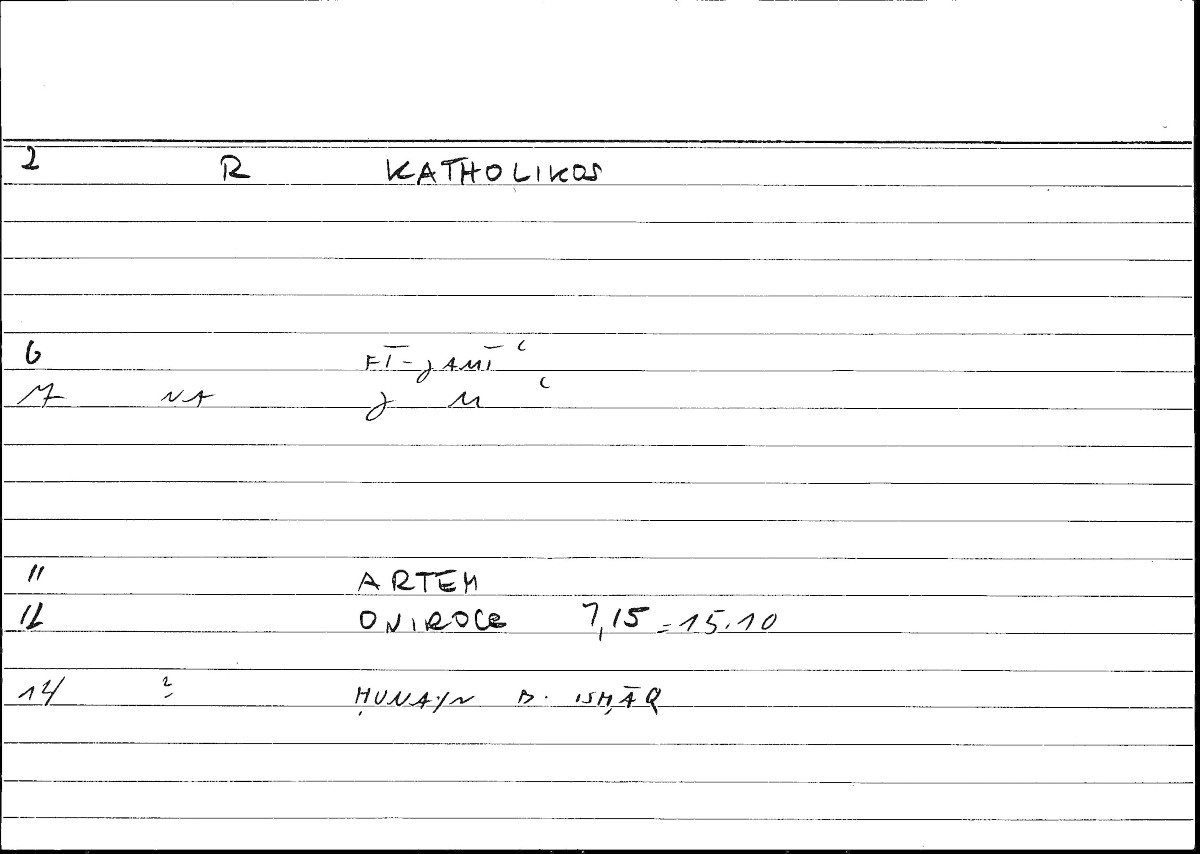 2 R KATHOLIKOS
6 FĪ-JAMĪʿ
NA J M ʿ
11 ARTEM
12 ONIROCR 7,15 = 15.10
14 ? ḤUNAYN B. ISḤĀQ